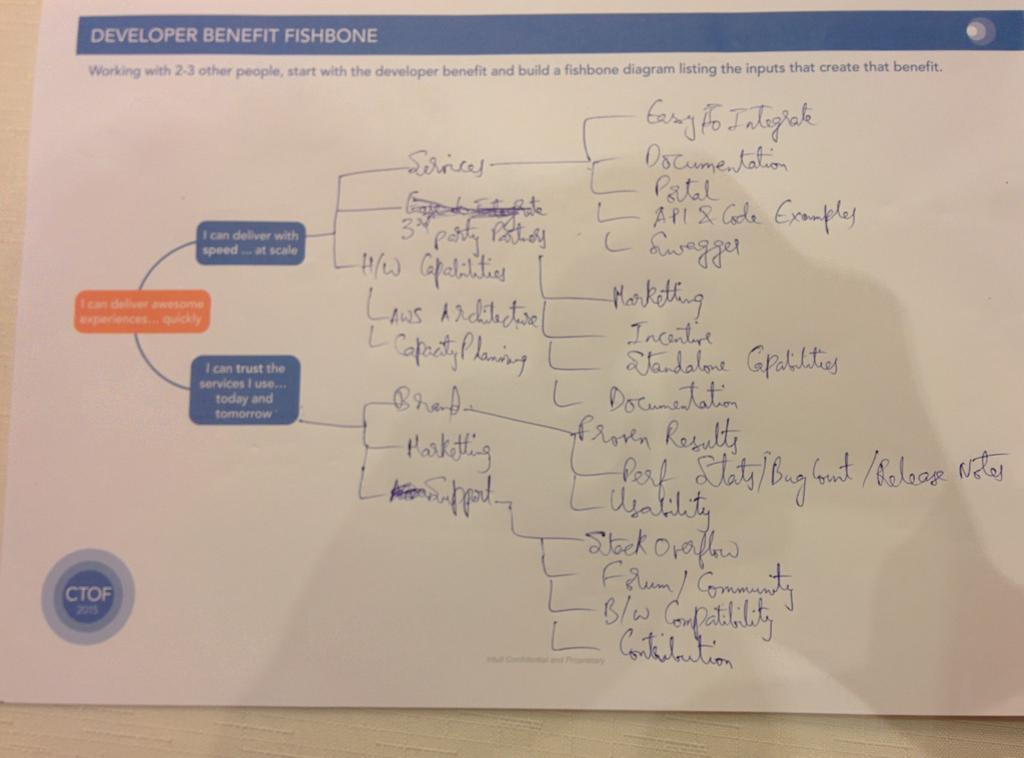 DEVELOPER BENEFIT FISHBONE
Working with 2-3 other people, start with the developer benefit and build a fishbone diagram listing the inputs that create that benefit.
I can deliver awesome
experiences... quickly
I can deliver with
speed ... at scale
Services
Easy to Integrate
Documentation
Portal
API & Code Examples
Swagger
3rd party Partners
Marketting
Incentive
Standalone Capabilities
Documentation
H/W Capabilities
AWS Architecture
Capacity Planning
I can trust the
services I use...
today and
tomorrow
Brand
Proven Results
Perf Stats/Bug Count/Release Notes
Usability
Marketting
Support
Stack Overflow
Forum/Community
B/W Compatibility
Contribution
CTOF
2015
Intuit Confidential and Proprietary